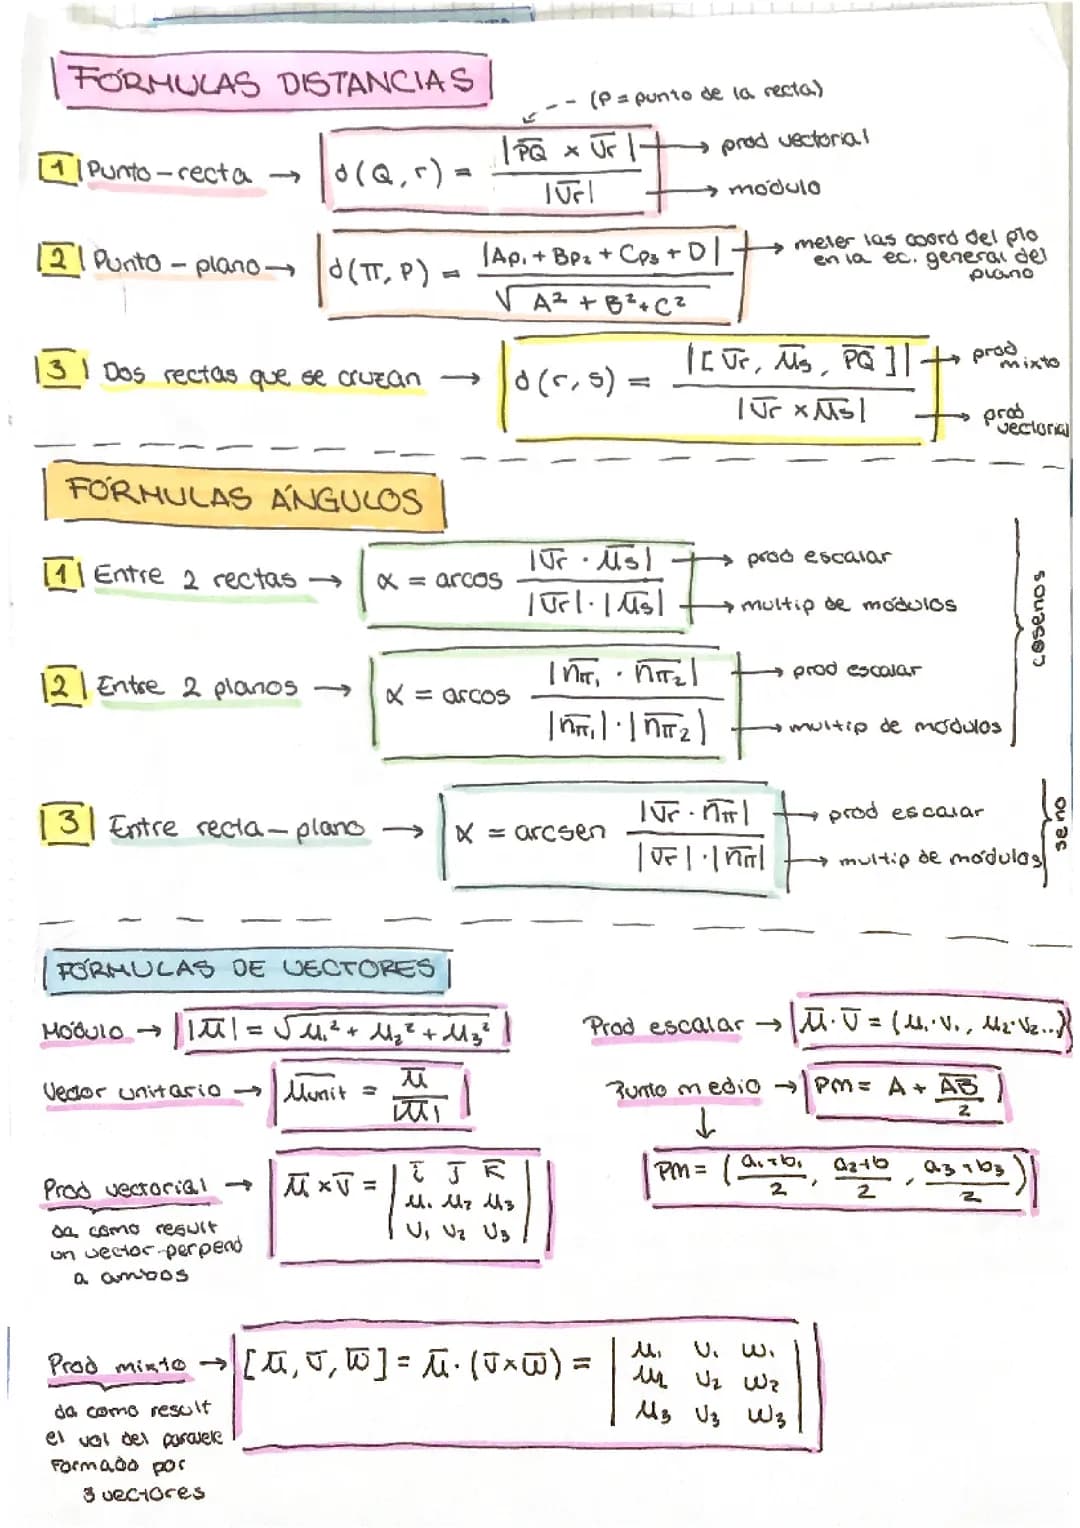 FÓRMULAS DISTANCIAS
(P = punto de la recta)
1 Punto-recta → d(Q, r) = |P̅Q̅ × v̅r| / |v̅r| → prod vectorial → módulo
2 Punto - plano → d(π, P) = |Ap₁ + Bp₂ + Cp₃ + D| / √A² + B² + C² → meter las coord del pto
en la ec. general del
plano
3 Dos rectas que se cruzan → d(r, s) = |[v̅r, u̅s, P̅Q̅]| / |v̅r × u̅s| → prod mixto → prod vectorial
FÓRMULAS ÁNGULOS
1 Entre 2 rectas → α = arcos |v̅r · u̅s| / |v̅r| · |u̅s| → prod escalar → multip de módulos
2 Entre 2 planos → α = arcos |n̅π₁ · n̅π₂| / |n̅π₁| · |n̅π₂| → prod escalar → multip de módulos
cosenos
3 Entre recta-plano → α = arcsen |v̅r · n̅π| / |v̅r| · |n̅π| → prod escalar → multip de módulos
seno
FÓRMULAS DE VECTORES
Módulo → |u̅| = √u₁² + u₂² + u₃²
Prod escalar → u̅ · v̅ = (u₁·v₁, u₂·v₂...)
Vector unitario → u̅unit = u̅ / |u̅|
Punto medio → PM = A + A̅B̅ / 2
↓
PM = (a₁+b₁ / 2, a₂+b / 2, a₃+b₃ / 2)
Prod vectorial → u̅ × v̅ = | i̅ j̅ k̅
u₁ u₂ u₃
v₁ v₂ v₃ |
da como result
un vector perpend
a ambos
Prod mixto → [u̅, v̅, w̅] = u̅ · (v̅ × w̅) = | u₁ v₁ w₁
u₂ v₂ w₂
u₃ v₃ w₃ |
da como result
el vol del paralele
formado por
3 vectores